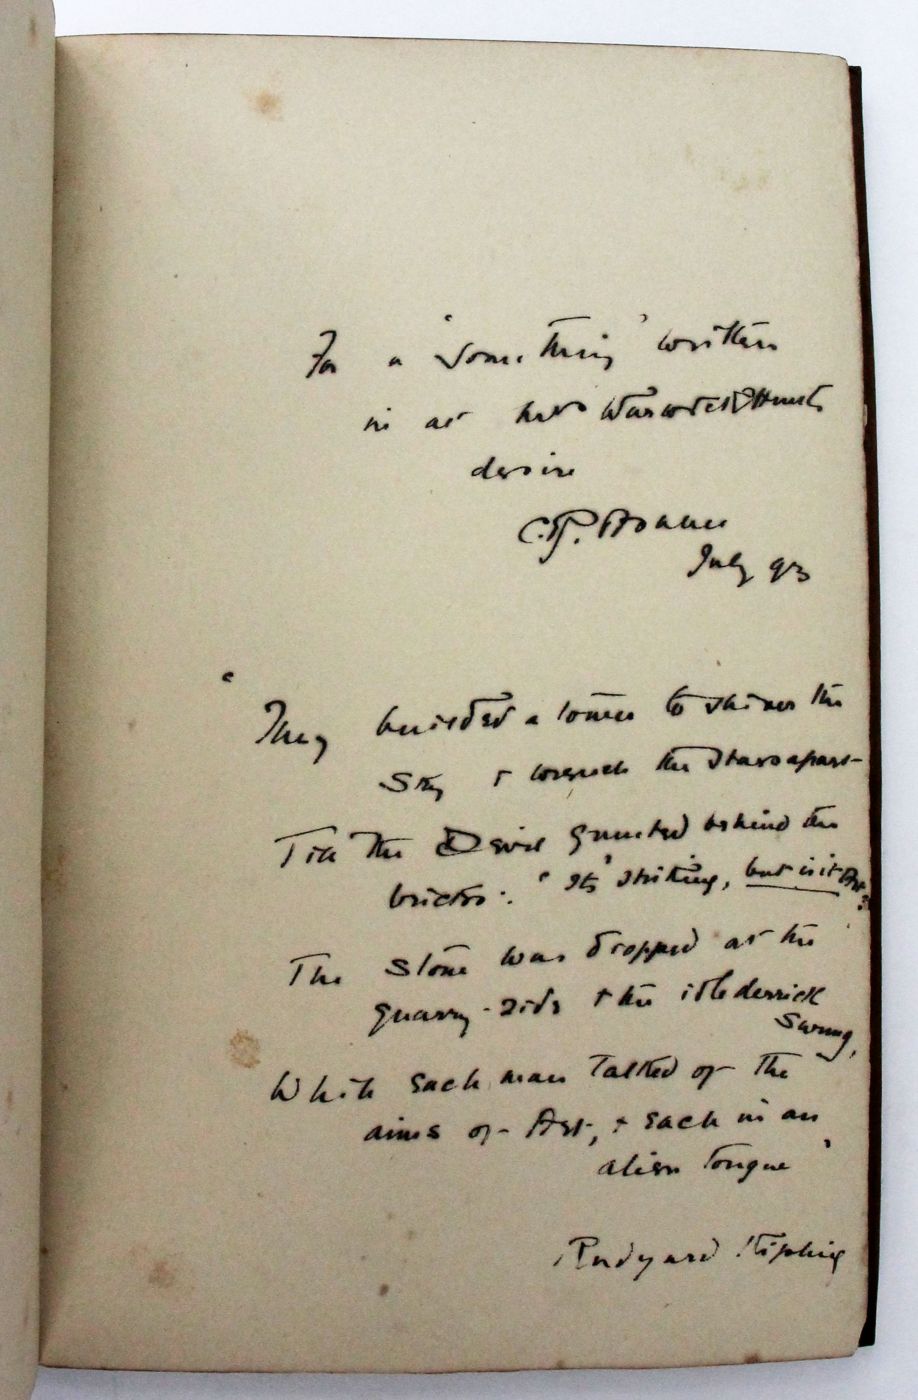 For a 'Something' written
in at
desire
July 93
"They builded a tower to shiver the
sky & wrench the stars apart -
Till the Devil grunted behind the
bricks: "It's striking, but is it Art?
The stone was dropped at the
quarry-side & the idle derrick
swung,
While each man talked of the
aims of Art, & each in an
alien tongue"
Rudyard Kipling